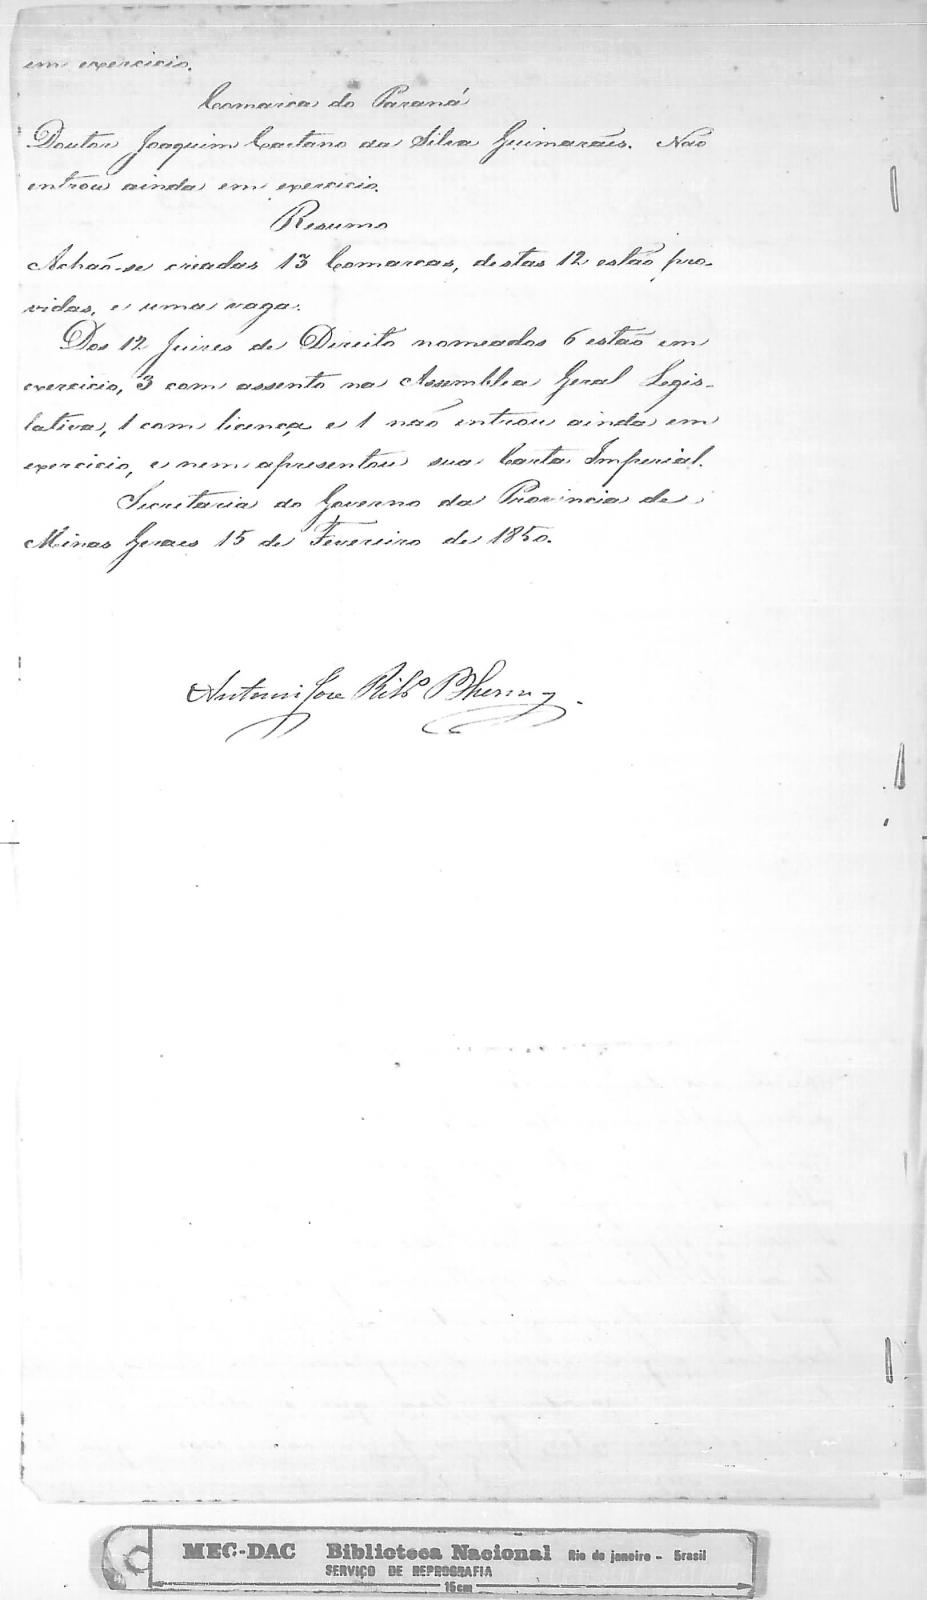 em exercicio.
Comarca do Paraná
Doutor Joaquim Caetano da Silva Guimarães. Não
entrou ainda em exercicio.
Resumo
Achaõ-se criadas 13 Comarcas, destas 12 estão pro-
vidas, e uma vaga.
Dos 12 Juizes de Direito nomeados 6 estão em
exercicio, 3 com assento na Assemblea Geral Legis-
lativa, 1 com licença e 1 não entrou ainda em
exercicio, e nem apresentou sua Carta Imperial.
Secretaria do Governo da Provincia de
Minas Geraes 15 de Fevereiro de 1850.
Antonio José Ribº
MEC-DAC Biblioteca Nacional Rio de janeiro - Brasil
SERVIÇO DE REPROGRAFIA
15cm